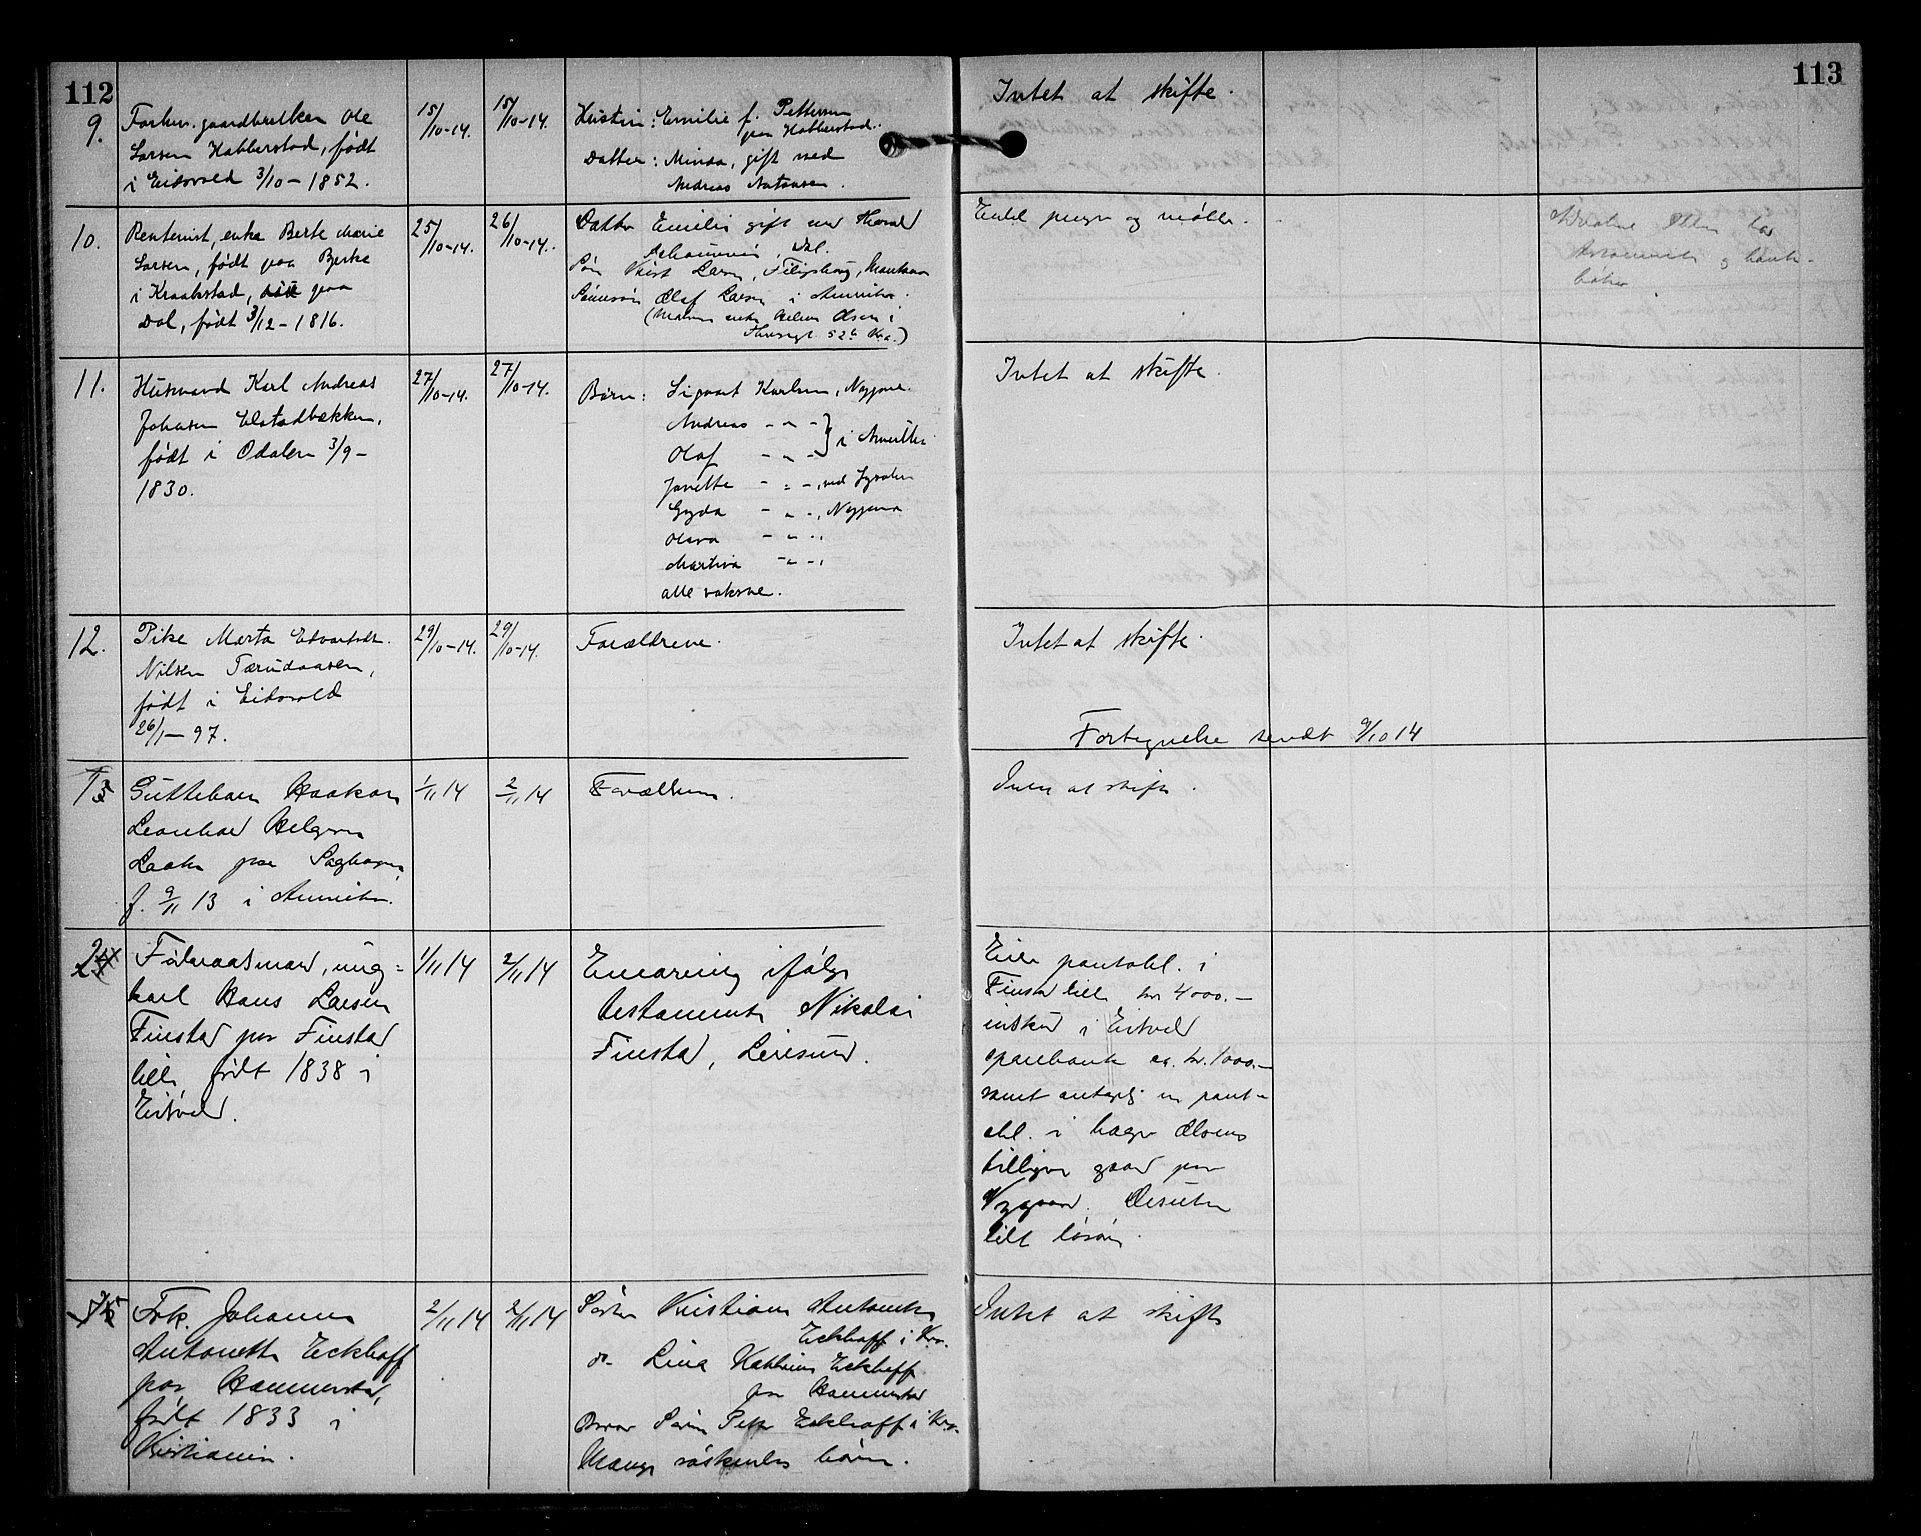 112
9.
Forhen. gaardbruker Ole
Larsen Habberstad, født
i Eidsvold 3/10 - 1852.
15/10-14.
15/10-14.
Hustru: Emilie f. Pettersen
paa Habberstad.
Datter: Minda, gift med
Andreas
Intet at skifte.
10.
Rentenist, enke Berte Marie
Larsen, født paa Berke
i Kraakstad, paa
Dal, født 3/12 - 1816.
25/10-14.
26/10-14.
Datter Emilie gift med Harald
Johannesen, Dal.
Søn Larsen,
Sønnesøn Olaf Larsen i Amerika.
(enke Helene Olsen i
52 Kra.)
Endel penger og møbler.
Olsen har
testamente og bank-
bøker
11.
Husmand Karl Andreas
Johansen Elstadbakken,
født i Odalen 3/9 -
1830.
27/10-14.
27/10-14.
Børn: Sigvart Karlsen, Nygjora.
Andreas - " -
Olaf - " - } i Amerika.
Janette - " -, ved
Gyda - " -, Nygjora
Olava - " -,
Martina - " -,
alle voksne.
Intet at skifte.
12.
Pike Marta Edvardsdt.
Nilsen Tærudaasen,
født i Eidsvold
26/1 - 97.
29/10-14.
29/10-14.
Forældrene.
Intet at skifte.
Fortegnelse sendt 9/10 14
13
Guttebarn Haakon
Leonhard Helgesen
Laake paa Saghagen,
f. 9/11 13 i Amerika.
1/11 14
2/11 14
Forældrene.
Intet at skifte.
2
Føderaadsmand, ung-
karl Hans Larsen
Finstad paa Finstad
lille, født 1838 i
Eidsvold.
1/11 14
2/11 14
Enearving ifølge
testamente Nikolai
Finstad, Leirsund.
Eier pantobl. i
Finstad lille kr 4000.-
indskud i Eidsvold
sparebank ca. kr. 1000.-
samt antagelig en pant-
obl. i Olsens
tidligere gaard paa
Nygaard. Desuten
lidt løsøre.
15
Frk. Johanne
Antonette Eckhoff
paa Hammerstad,
født 1833 i
Kristiania.
2/11 14
2/11 14
Søster Kristiane Antonette
Eckhoff i Kra.
do. Lina Kathrine Eckhoff
paa Hammerstad
Bror Søren Peter Eckhoff i Kra.
Mange søskendes børn.
Intet at skifte
113